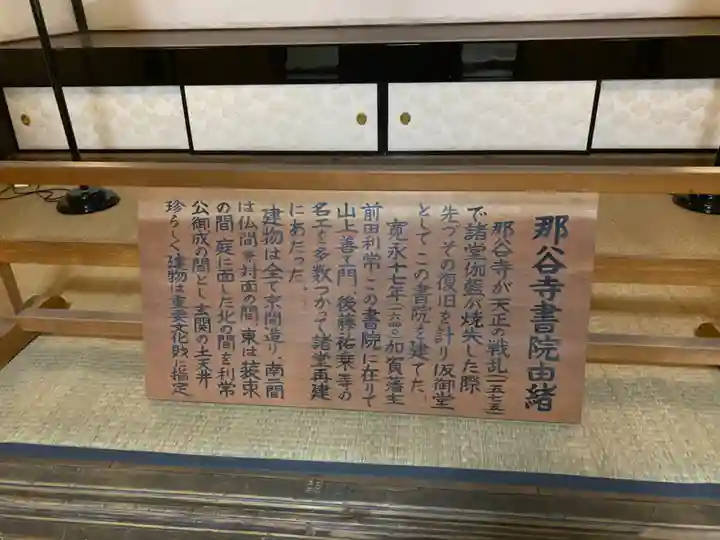 那谷寺書院由緒
那谷寺が天正の戦乱(一五七五)
で諸堂伽藍が焼失した際
先づその復旧を計り仮御堂
としてこの書院を建てた。
寛永十七年(一六四〇)加賀藩主
前田利常この書院に在りて
山上善右門、後藤祐乗等の
名工を多数つかって諸堂再建
にあたった
建物は全て京間造り、南二間
は仏間並対面の間、東は装束
の間、庭に面した北の間を利常
公御成の間とし玄関の土天井
珍らしく建物は重要文化財に指定